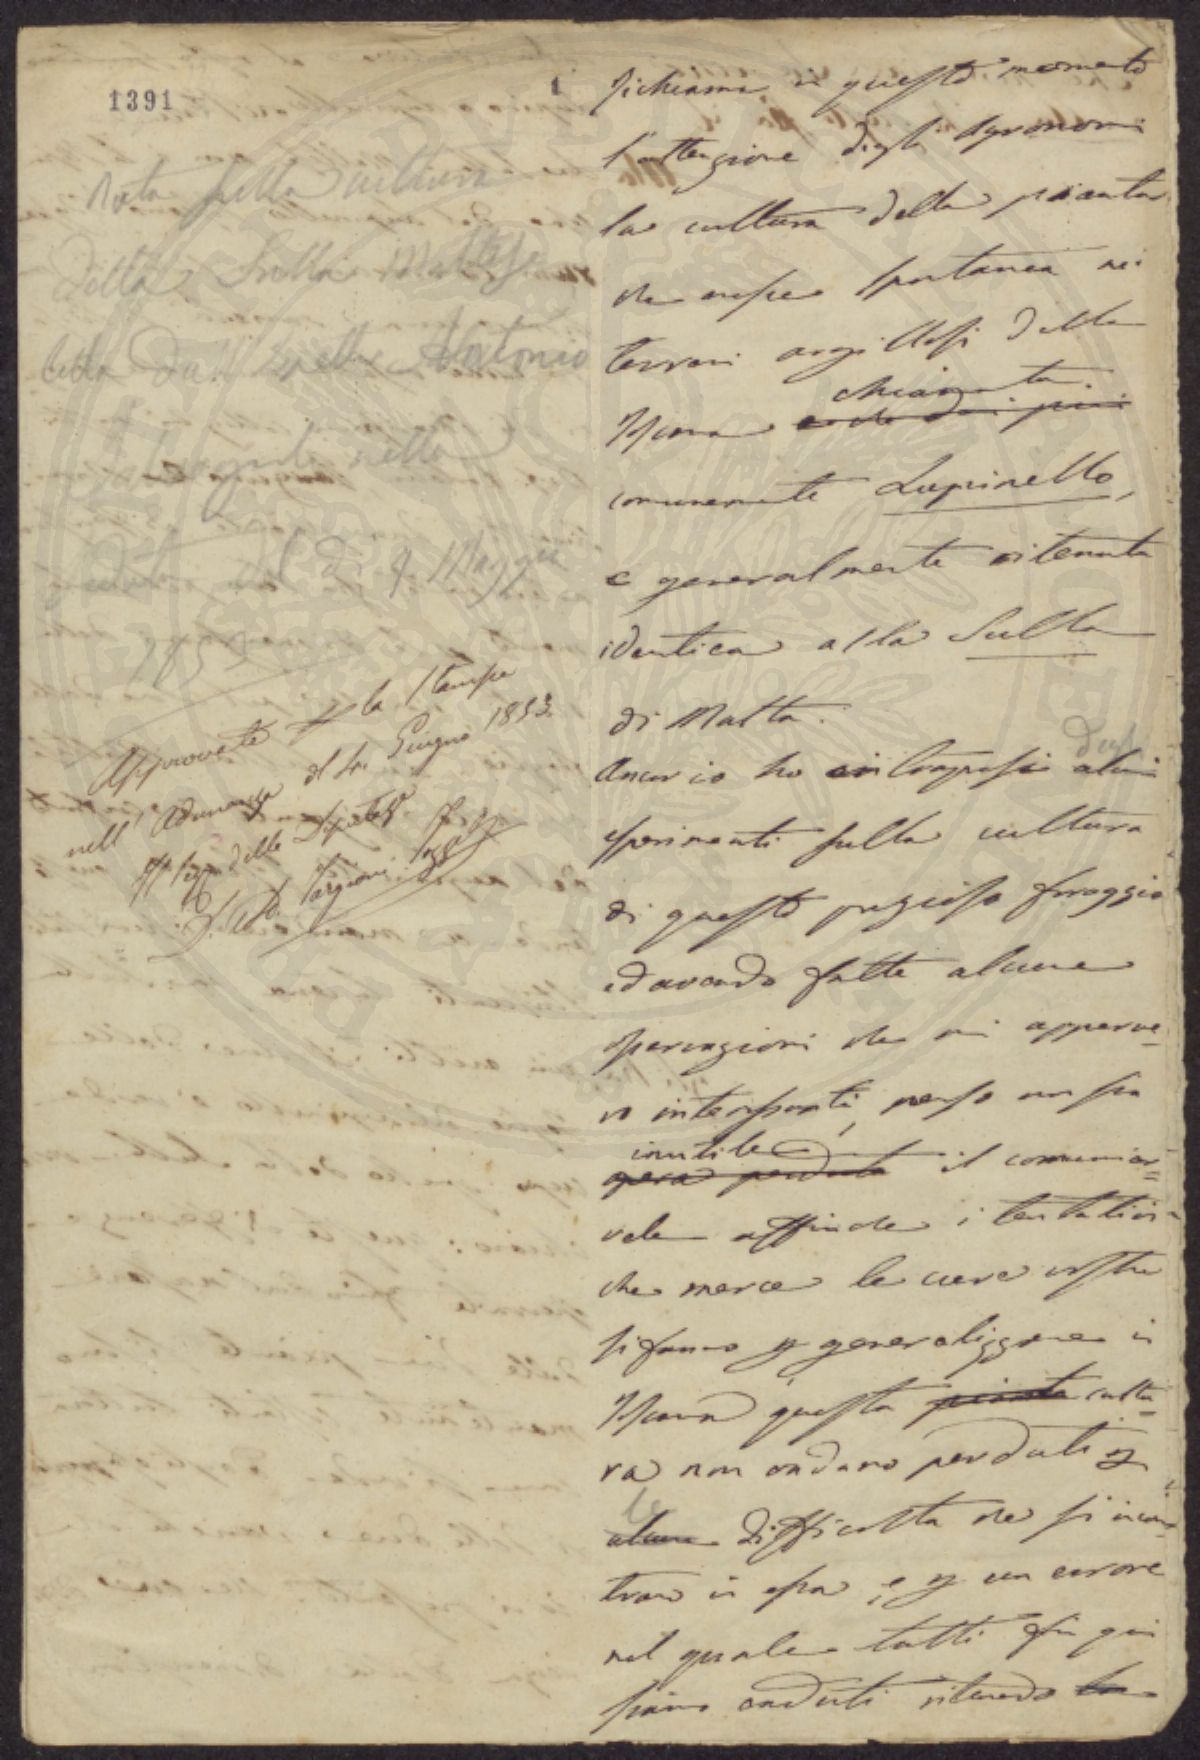 1391
1
Nota sulla cultura
della Sulla Maltese
letta dal Antonio
nella
adunanza del dì 9 Maggio
1853
Approvata p la stampa
nell'Adunanza del Giugno 1853.
Targioni Tozzetti
Richiama in questo momento
l'attenzione degli Agronomi
la cultura della pianta
che cresce spontanea nei
terreni argillosi della
Toscana chiamata
comunemente Lupinello,
e generalmente ritenuta
identica alla Sulla
di Malta.
Ancor io ho intrapresi degli
esperimenti sulla cultura
di questo prezioso foraggio
ed avendo fatte alcune
osservazioni che mi apparve-
ro interessanti, penso non sia
inutile il comunicar=
vele affinche i tentativi
che merce le cure vostre
si fanno p generalizzare in
Toscana questa pianta cultu=
ra non vadano perduti p
alcune le difficolta che si incon-
trano in essa, e p un errore
nel quale tutti fin qui
siamo caduti ritenendo la